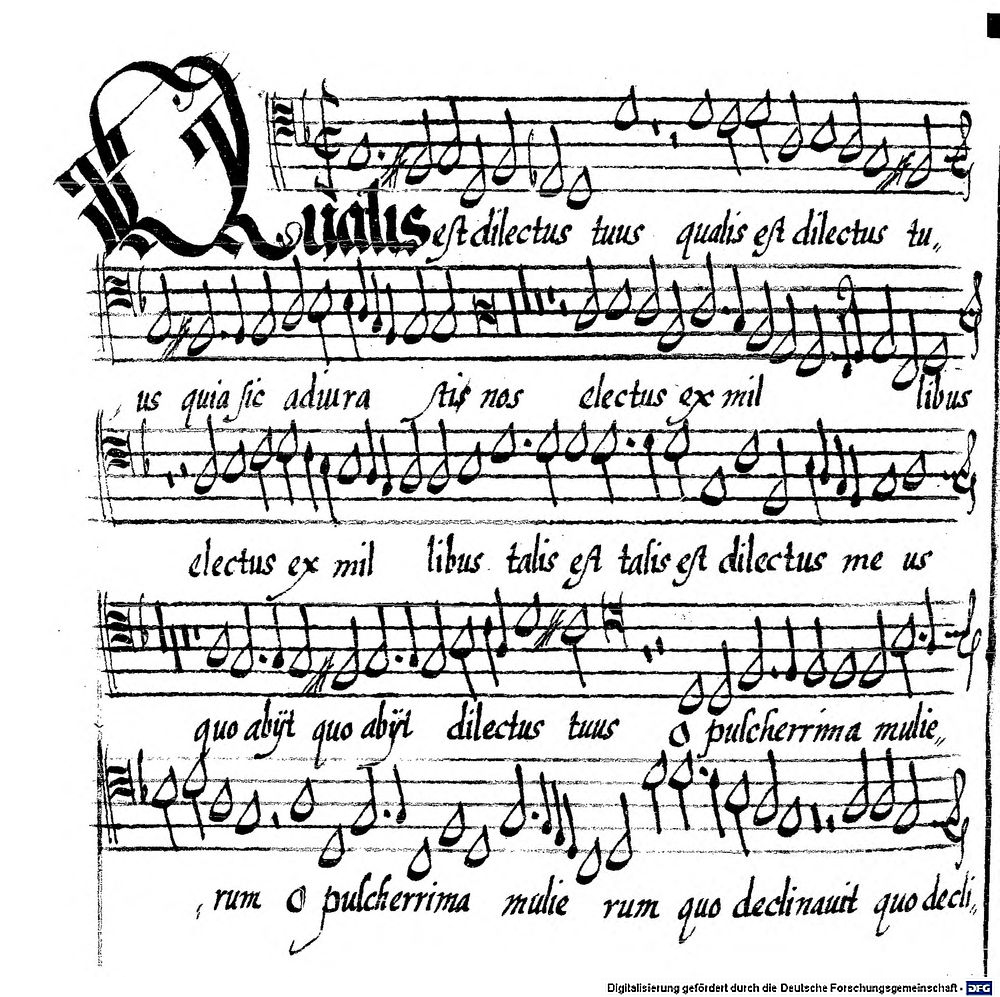 Qualis est dilectus tuus qualis est dilectus tu„
us quia sic adiura stis nos electus ex mil libus
electus ex mil libus talis est talis est dilectus me us
quo abijt quo abijt dilectus tuus O pulcherrima mulie„
rum O pulcherrima mulie rum quo declinauit quo decli„
Digitalisierung gefördert durch die Deutsche Forschungsgemeinschaft - DFG